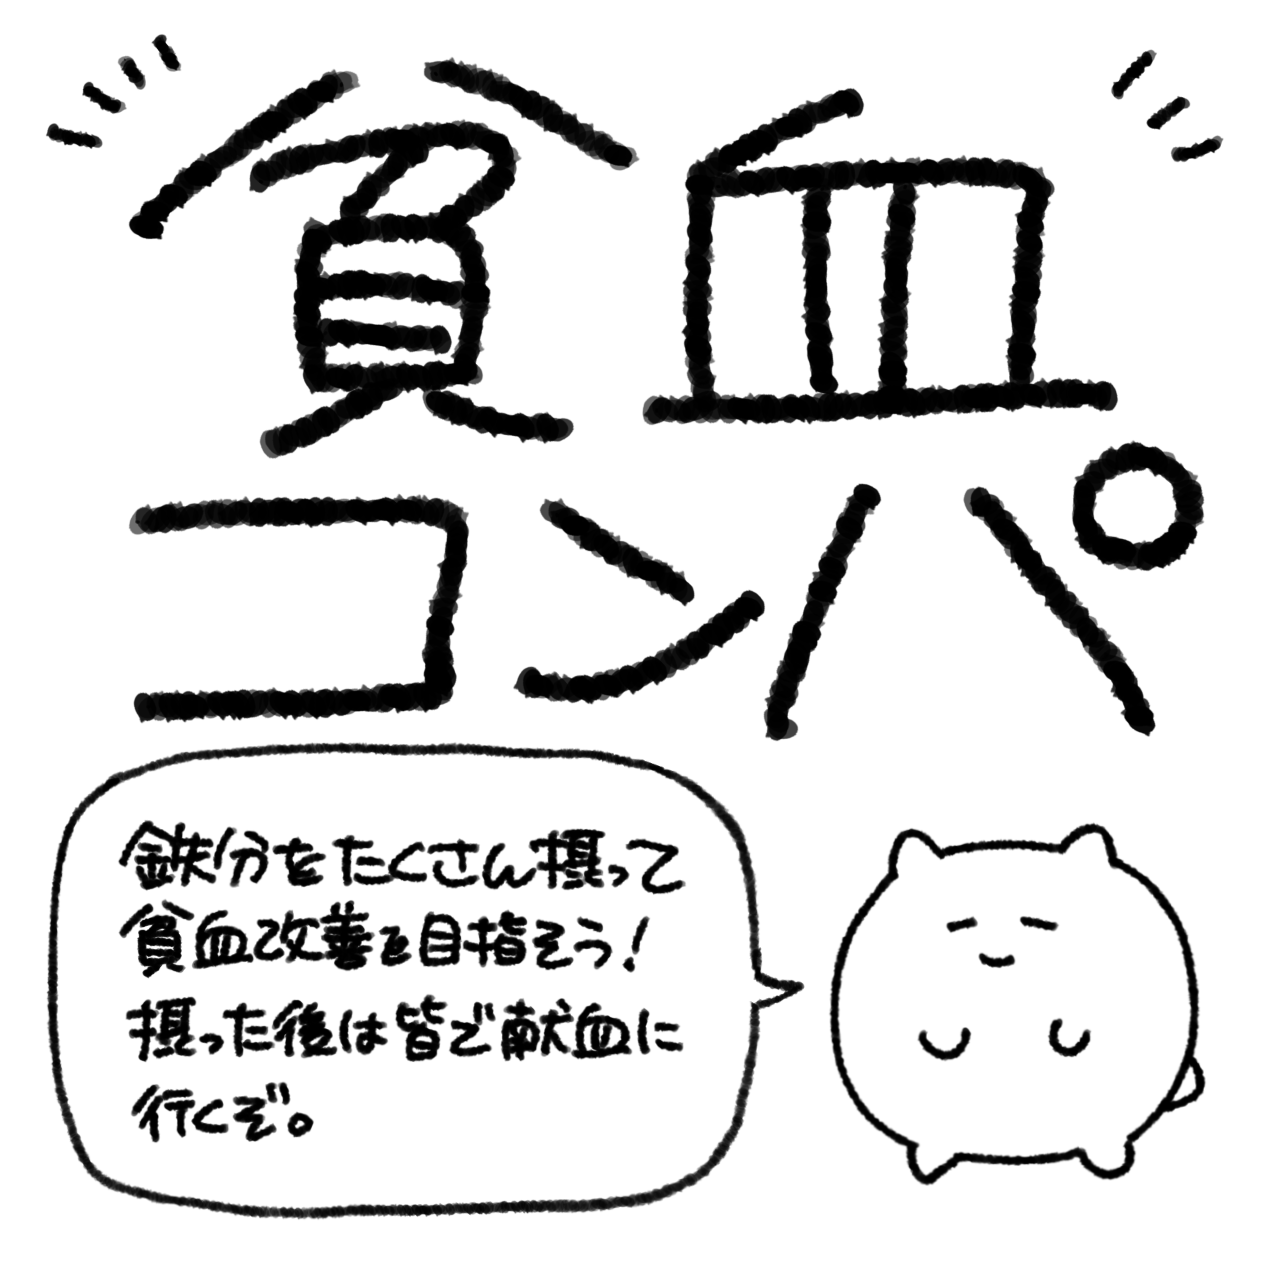 貧血
コンパ
鉄分をたくさん摂って
貧血改善を目指そう!
摂った後は皆で献血に
行くぞ。